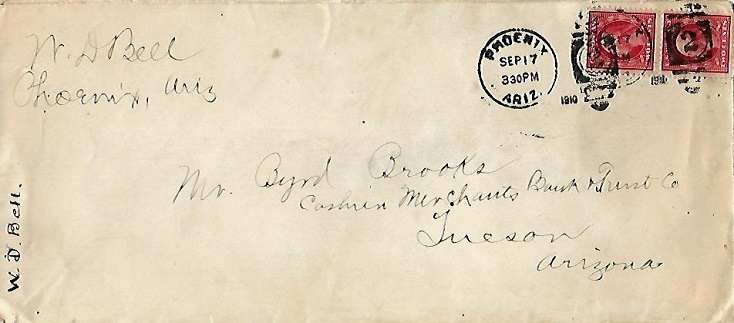 W. D Bell
Phoenix, Ariz
PHOENIX
SEP 17
330PM
ARIZ.
1910
1910
2
TWO CENTS
Mr. Byrd Brooks
Cashier Merchants Bank & Trust Co
Tucson
Arizona
W. D. Bell.